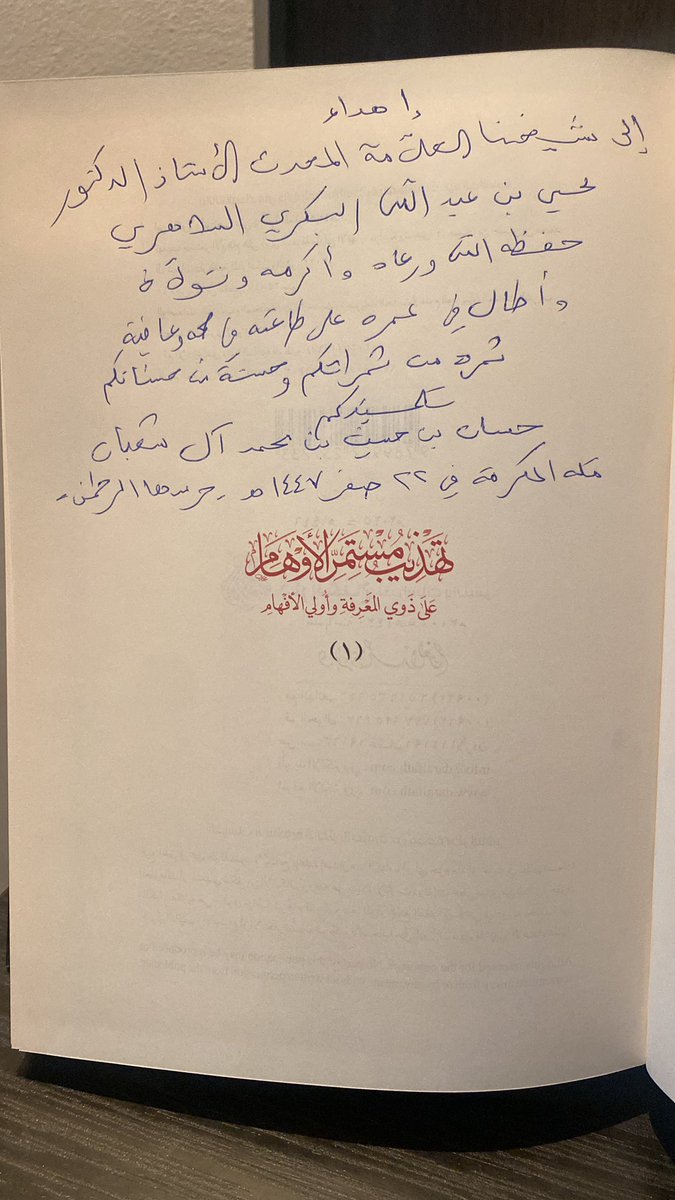 إهداء
إلى شيخنا العلامة المحدث الأستاذ الدكتور
يحيى بن عبد الله البكري الشهري
حفظه الله ورعاه وأكرمه وتولاه
وأطال في عمره على طاعته في صحة وعافية
ثمرة من ثمراتكم وحسنة من حسناتكم
تلميذكم
حسان بن حسين بن محمد آل شعبان
مكة المكرمة في ٢٢ صفر ١٤٤٧هـ -حرسها الرحمن-
تهذيب مستمر الأوهام
على ذوي المعرفة وأولي الأفهام
(١)